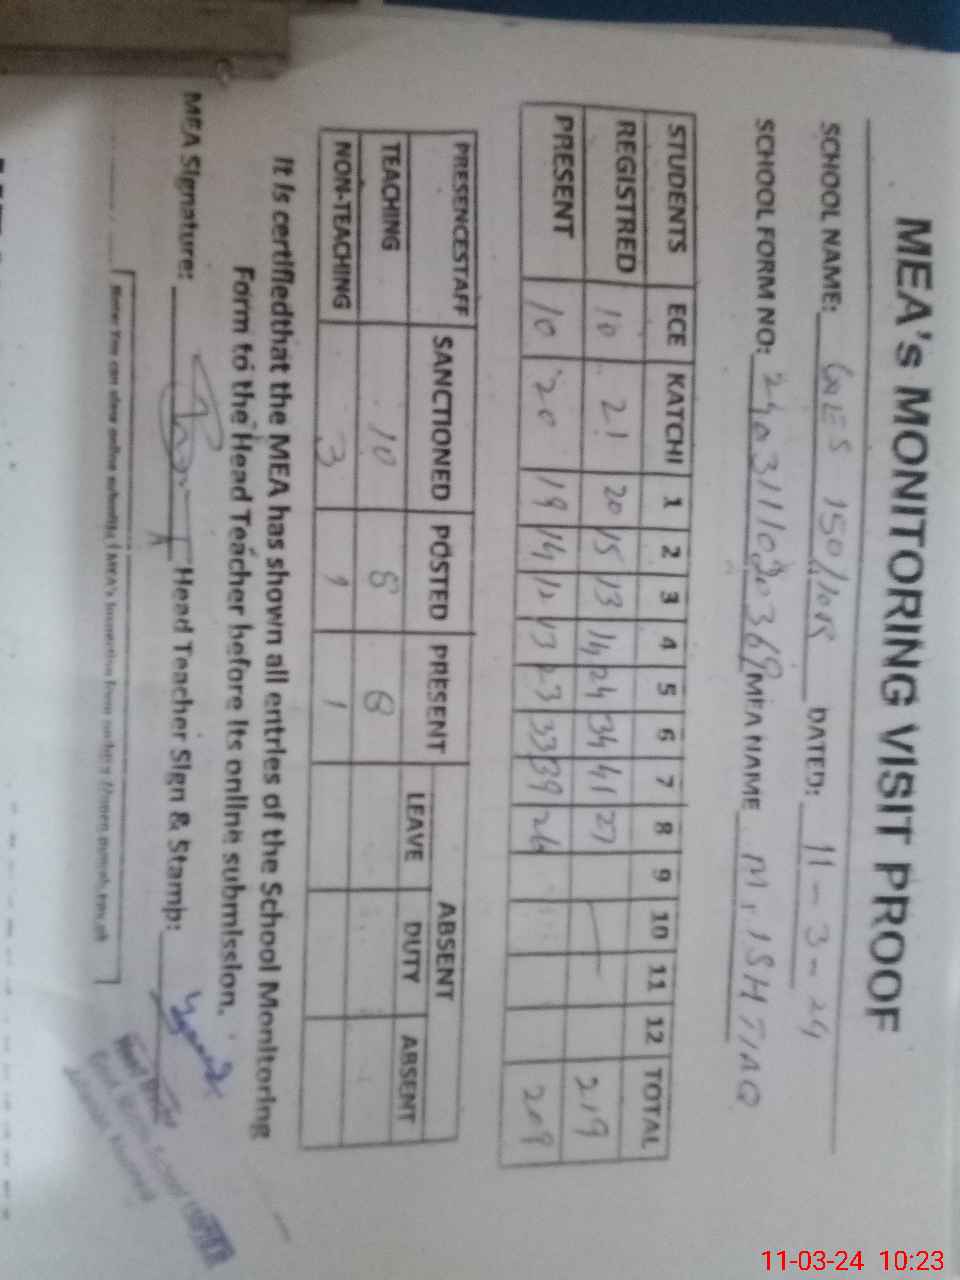 MEA's MONITORING VISIT PROOF
SCHOOL NAME: GMES 150/10R DATED: 11-3-24
SCHOOL FORM NO: MEA NAME M. ISHTIAQ
STUDENTS ECE KATCHI 1 2 3 4 5 6 7 8 9 10 11 12 TOTAL
REGISTRED 10 21 20 15 13 14 24 34 41 27 219
PRESENT 10 20 19 14 12 13 23 33 39 26 209
PRESENCESTAFF SANCTIONED POSTED PRESENT ABSENT
LEAVE DUTY ABSENT
TEACHING 10 8 8
NON-TEACHING 3 1 1
It is certifiedthat the MEA has shown all entries of the School Monitoring
Form to the Head Teacher before its online submission.
MEA Signature: Head Teacher Sign & Stamp:
Note: You can show online
11-03-24 10:23